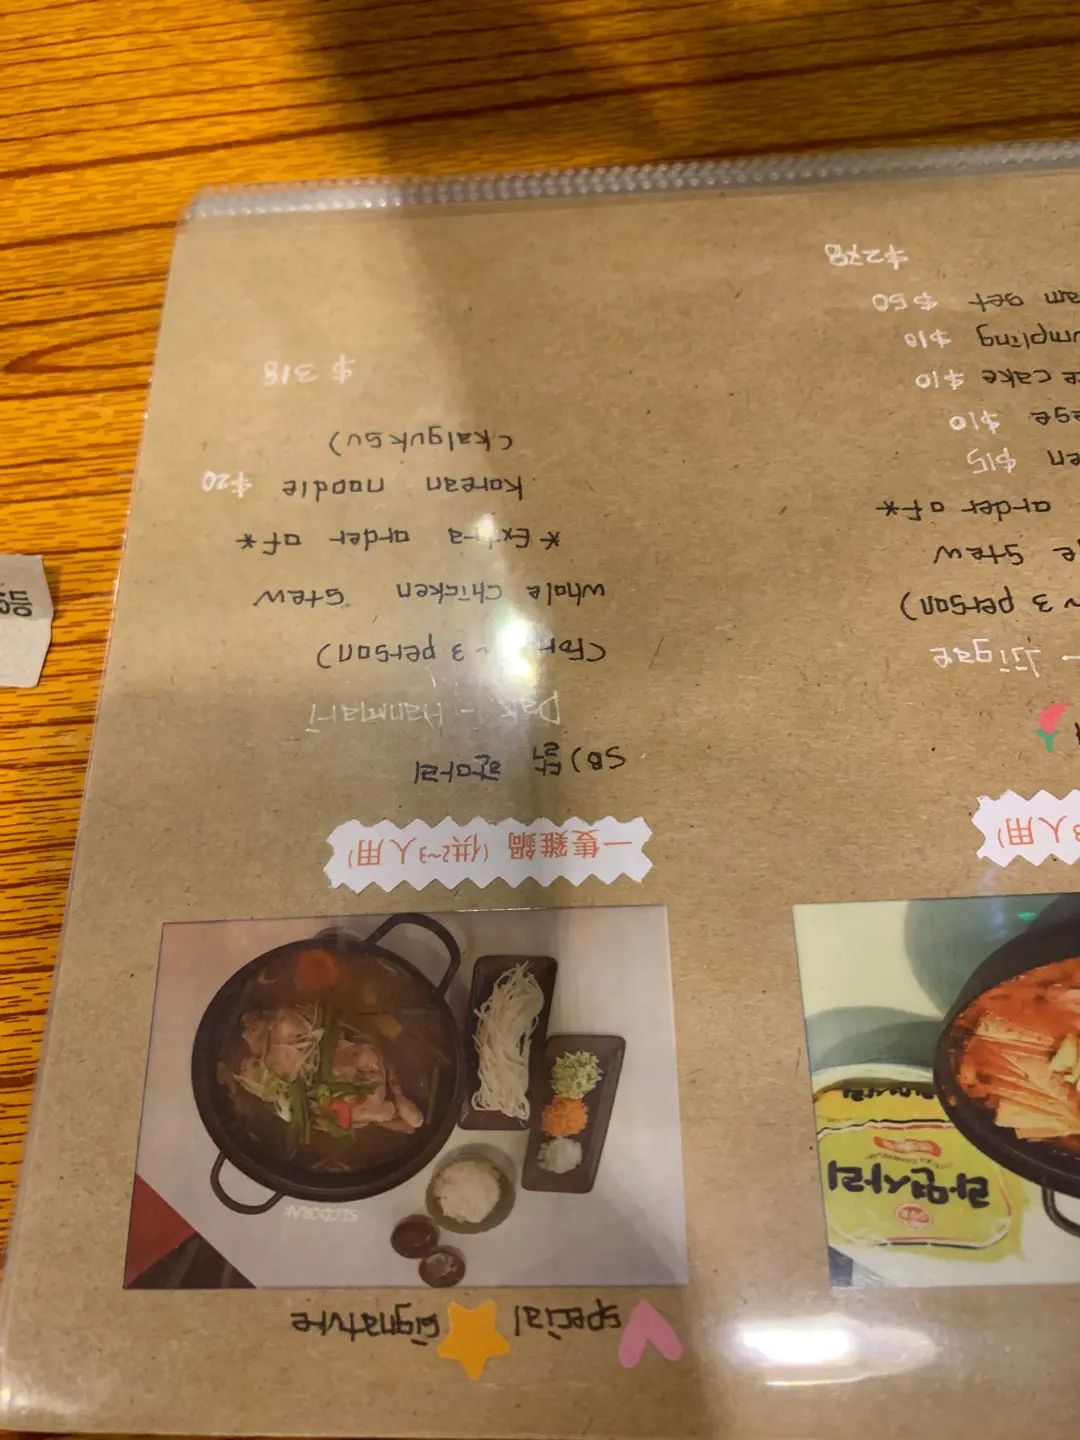 special signature
SEODORAK
一隻雞鍋 (供2~3人用)
S8) 닭 한마리
Dak - Hanmari
(for ~ 3 person)
whole chicken stew
*Extra order of*
Korean noodle $20
(kalguksu)
$318
등
라면사리
3人用)
- jjigae
~ 3 person)
stew
order of*
$15
$10
cake $10
$10
set $50
$278